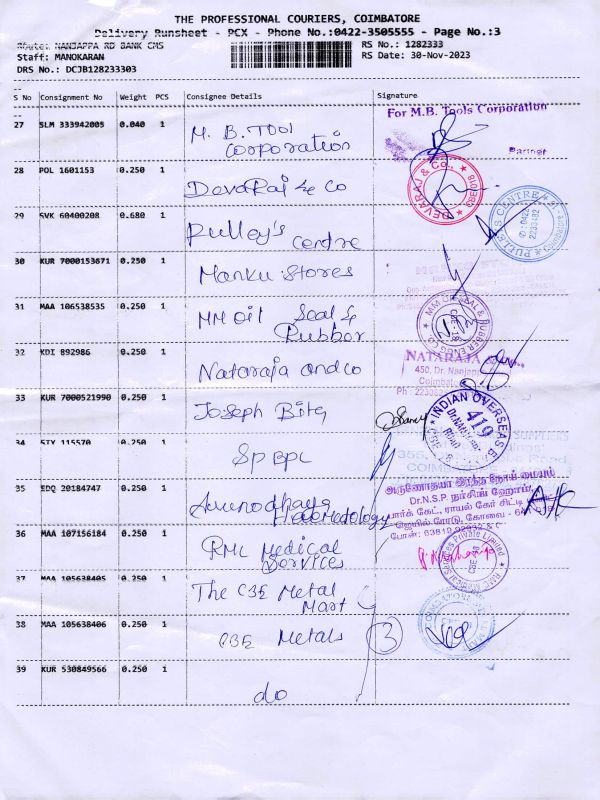 THE PROFESSIONAL COURIERS, COIMBATORE
Delivery Runsheet - PCX - Phone No.:0422-3505555 - Page No.:3
Route: NANJAPPA RD BANK CMS
RS No.: 1282333
Staff: MANOKARAN
RS Date: 30-Nov-2023
DRS No.: DCJB128233303
S No Consignment No Weight PCS Consignee Details Signature
For M.B. Tools Corporation
27 SLM 333942005 0.040 1 M. B. Tool
Corporation
Partner
28 POL 1601153 0.250 1 DevaRaj & Co
DEVARAJ & Co.,
29 SVK 60400208 0.680 1 Pulley's
Centre
PULLEYS CENTRE
0422
30 KUR 7000153671 0.250 1 Manku Stores
31 MAA 106538535 0.250 1 MM Oil Seal &
Rubber
MM OIL SEAL & RUBBER
32 KDI 892986 0.250 1 Nataraja and co
NATARAJA &
450, Dr. Nanjappa
Coimbatore
33 KUR 7000521990 0.250 1 Joseph
INDIAN OVERSEAS B
419
Dr.NANJAPPA
ROAD
34 STY 115570 0.250 1 SPBPL
SUPPLIERS
35 EDQ 20184747 0.250 1 Arunodhaya
Haematology
அருணோதயா இரத்த நோய் மையம்
Dr.N.S.P நர்சிங் ஹோம்,
பார்க் கேட், ராயல் கேர் சிட்டி
ஜெயில் ரோடு, கோவை -
போன்:
36 MAA 107156184 0.250 1 RML Medical
Services
Private Limited
37 MAA 105638405 0.250 1 The CBE Metal
Mart
38 MAA 105638406 0.250 1 CBE Metals 3
39 KUR 530849566 0.250 1 do